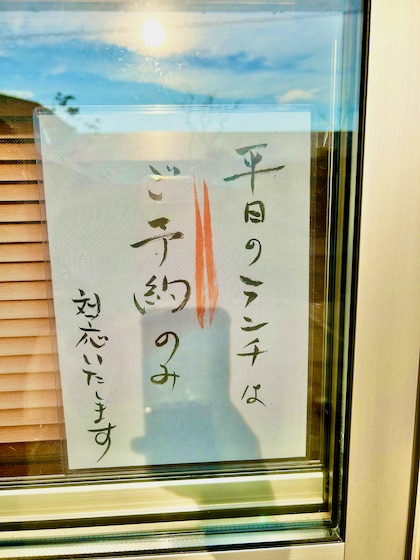 平日のランチは
ご予約のみ
対応いたします